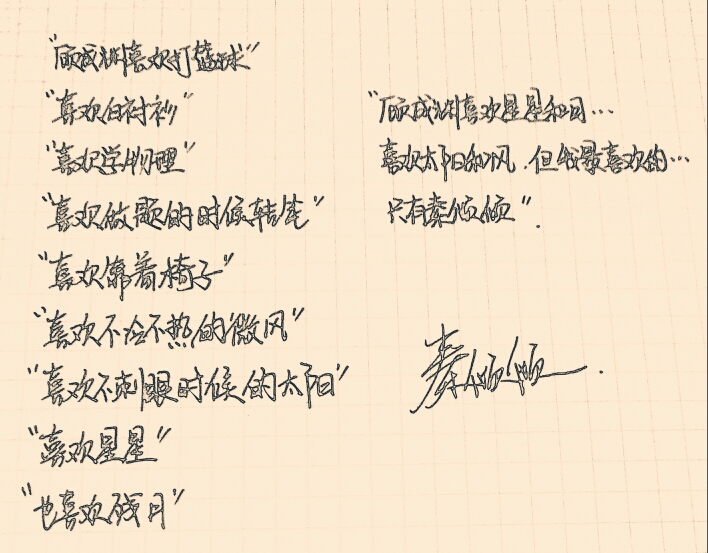 “顾成渊喜欢打篮球”
“喜欢白衬衫”
“喜欢学物理”
“喜欢做题的时候转笔”
“喜欢靠着椅子”
“喜欢不冷不热的微风”
“喜欢不刺眼时候的太阳”
“喜欢星星”
“也喜欢残月”
“顾成渊喜欢星星和月…
喜欢太阳和风.但我最喜欢的…
只有秦倾倾”.
秦倾倾.